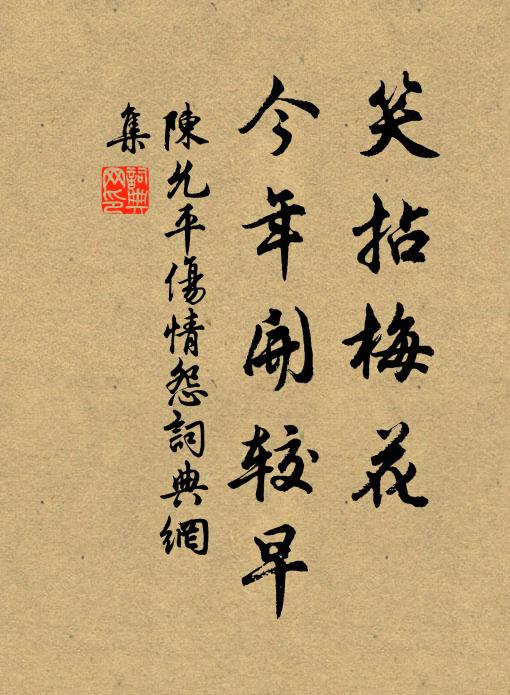 笑拈梅花
今年開较早
陳允平傷情怨詞典網
集
詞典
网印